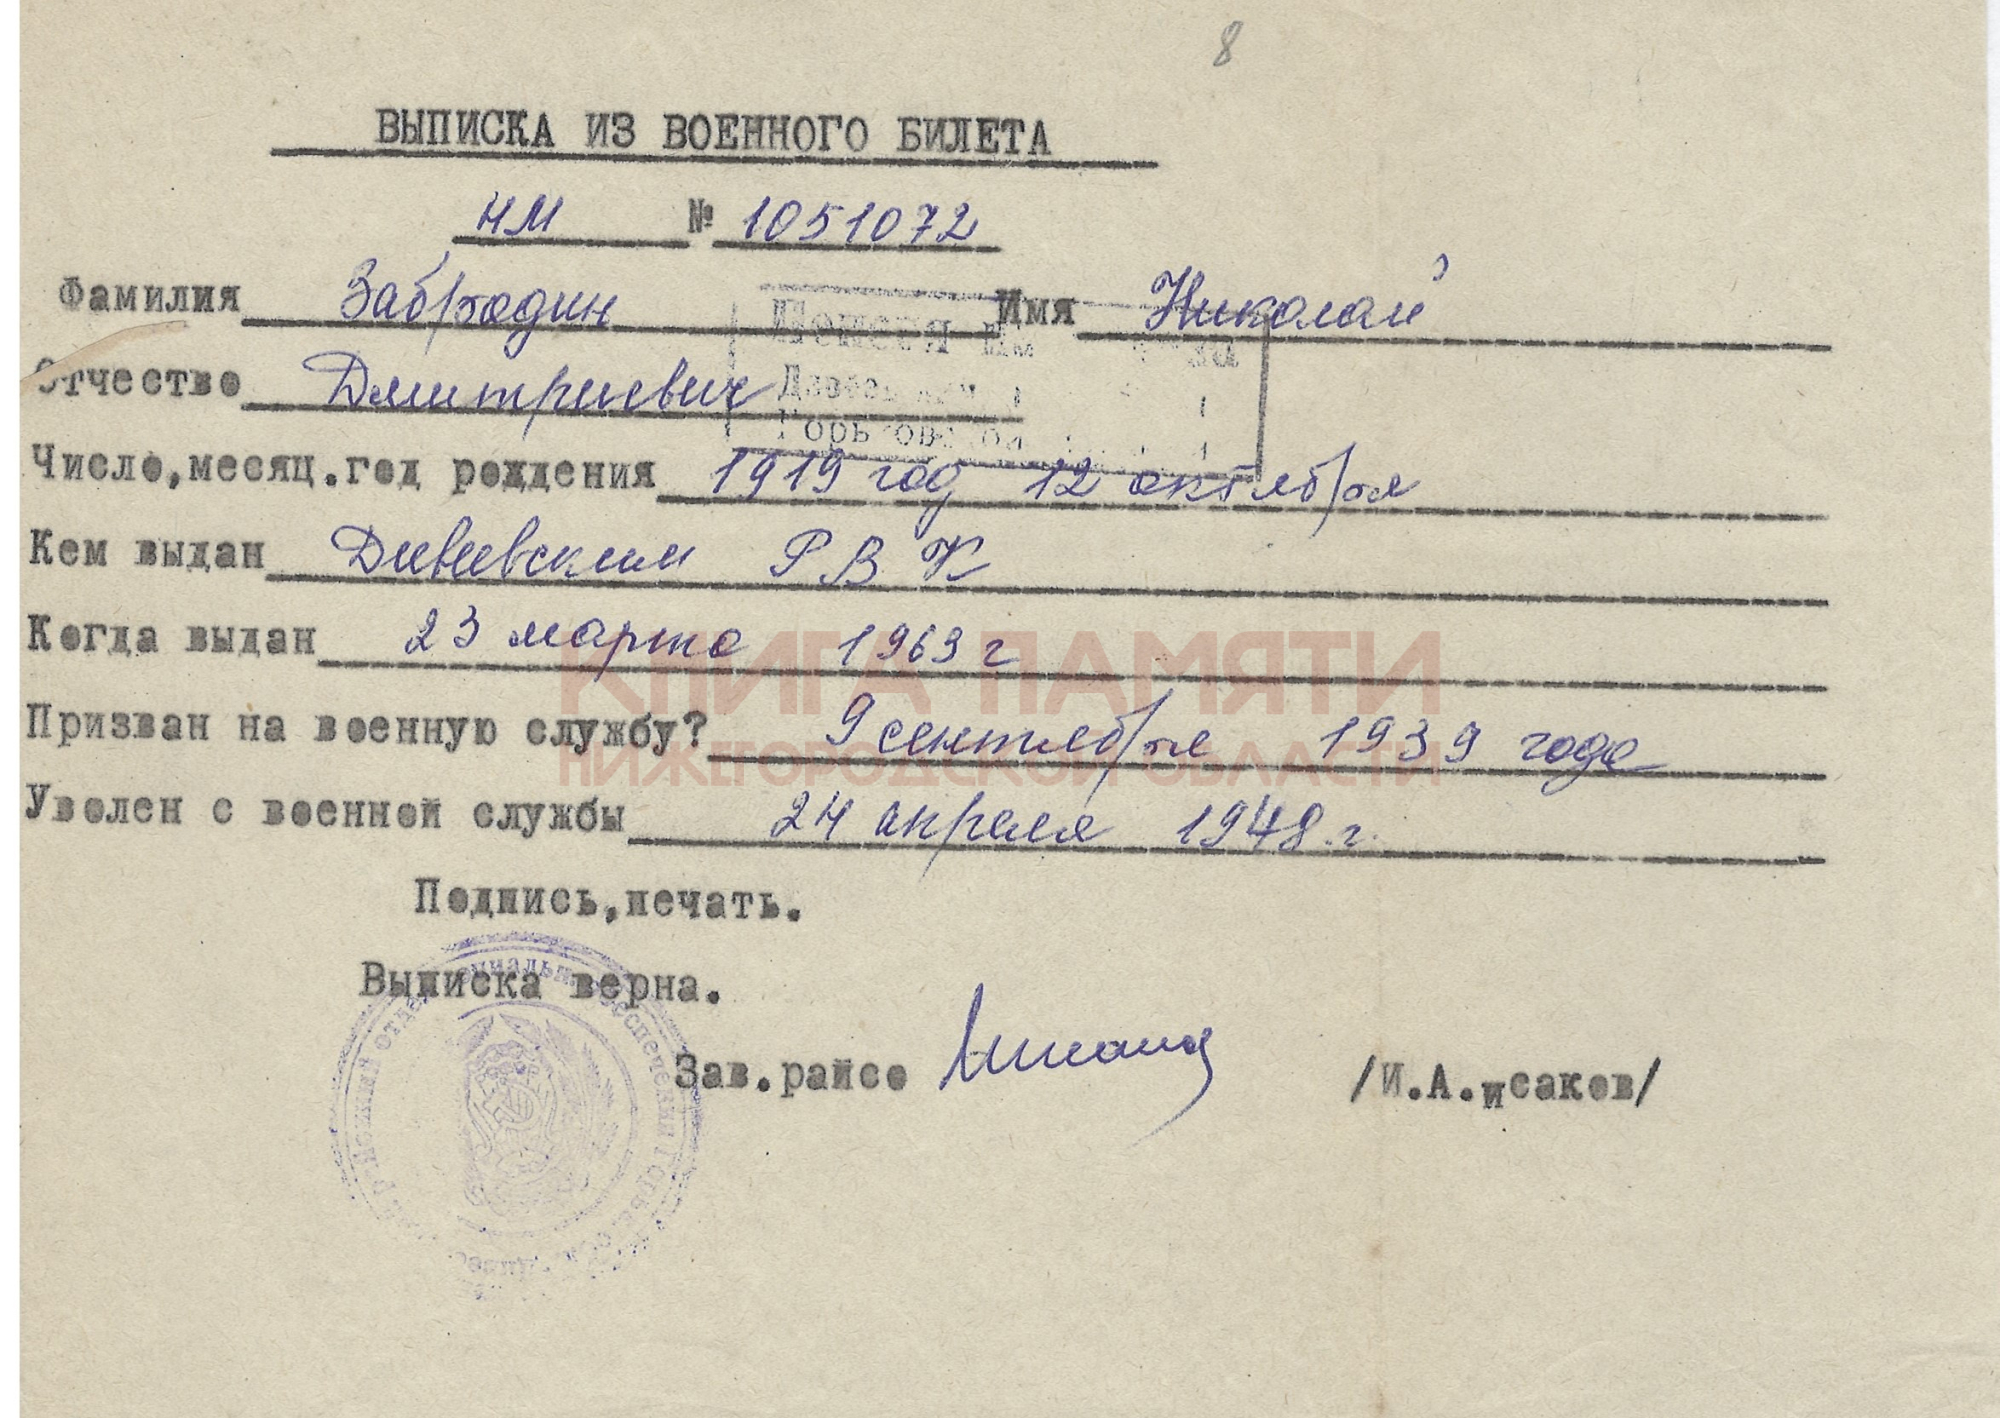 8
ВЫПИСКА ИЗ ВОЕННОГО БИЛЕТА
НМ № 1051072
Фамилия Забродин Имя Николай
Отчество Дмитриевич
Число,месяц.год рождения 1919 год 12 октября
Кем выдан Дивеевским РВК
Когда выдан 23 марта 1963 г
КНИГА ПАМЯТИ
Призван на военную службу? 9 сентября 1939 года
НИЖЕГОРОДСКОЙ ОБЛАСТИ
Уволен с военной службы 24 апреля 1948 г.
Подпись,печать.
Выписка верна.
Зав.райсо /И.А.исаков/